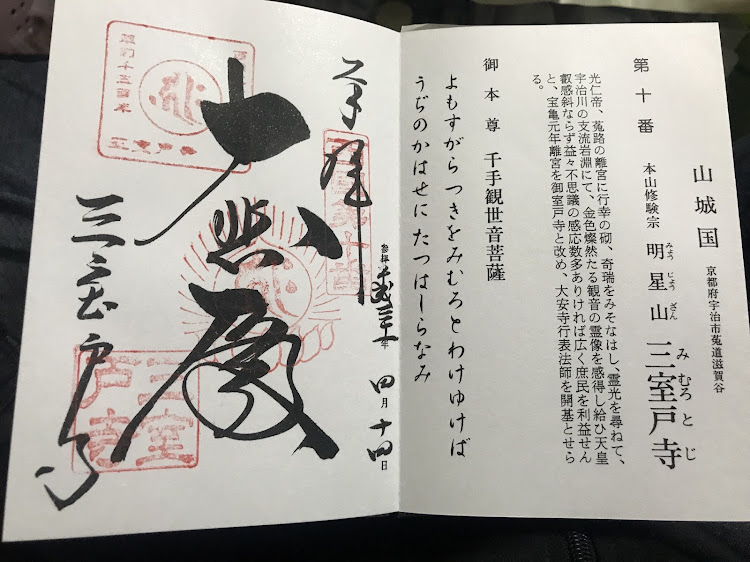 山城国
京都府宇治市菟道滋賀谷
第十番 本山修験宗 明星山 三室戸寺
みょうじょうざん
みむろとじ
光仁帝、菟路の離宮に行幸の砌、奇瑞をみそなはし、霊光を尋ねて、
宇治川の支流岩淵にて、金色燦然たる観音の霊像を感得し給ひ天皇
叡感斜ならず益々不思議の感応数多ありければ広く庶民を利益せん
と、宝亀元年離宮を御室戸寺と改め、大安寺行表法師を開基とせら
る。
御本尊 千手観世音菩薩
よもすがらつきをみむろとわけゆけば
うぢのかはせにたつはしらなみ
参拝 年 四月十四日
奉拝
大悲殿
三室戸寺
三室
戸寺